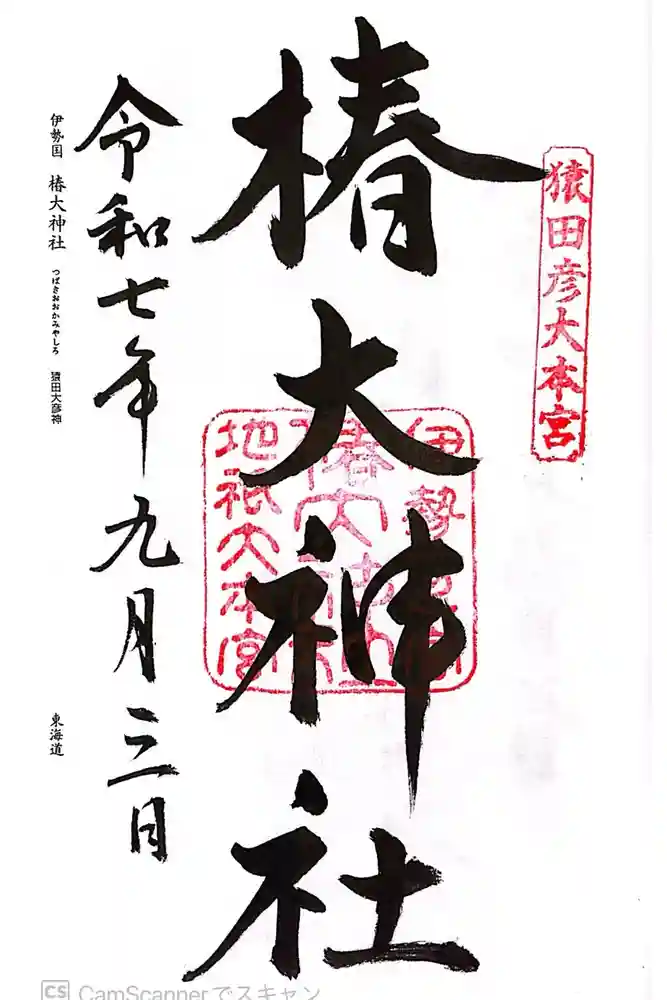 猿田彦大本宮
椿大神社
伊勢
椿大神社
地祇大本宮
令和七年九月三日
伊勢国 椿大神社 つばきおおかみやしろ 猿田大彦神
東海道
CS CamScannerでスキャン